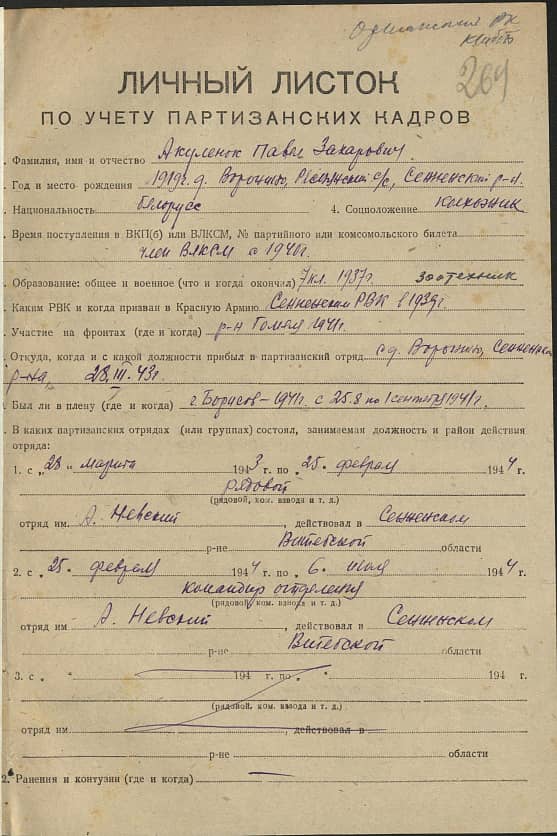 269
ЛИЧНЫЙ ЛИСТОК
ПО УЧЕТУ ПАРТИЗАНСКИХ КАДРОВ
. Фамилия, имя и отчество Акуленок Павел Захарович
. Год и место рождения 1919 г. д. с/с, Сенненский р-н.
. Национальность белорусс 4. Соцположение колхозник
. Время поступления в ВКП(б) или ВЛКСМ, № партийного или комсомольского билета
член ВЛКСМ с 1940 г.
. Образование: общее и военное (что и когда окончил) 7 кл. 1937 г зоотехник
. Каким РВК и когда призван в Красную Армию Сенненским РВК в 1939 г.
. Участие на фронтах (где и когда) р-н Гомеля 1941 г.
. Откуда, когда и с какой должности прибыл в партизанский отряд с д.
р-на, 28.III.43 г.
. Был ли в плену (где и когда) г. Борисов – 1941 г. с 25.8 по 1 сентября 1941 г.
. В каких партизанских отрядах (или группах) состоял, занимаемая должность и район действия
отряда:
1. с „28 марта 1943 г. по „25 февраля 1944 г.
рядовой
(рядовой, ком. взвода и т. д.)
отряд им. А. Невский, действовал в Сенненском
р-не Витебской области
2. с „25 февраля 1944 г. по „6 июля 1944 г.
командир отделения
(рядовой, ком. взвода и т. д.)
отряд им А. Невский, действовал в
р-не Витебской области
3. с „ " 194 г. по „ " 194 г.
(рядовой, ком. взвода и т. д.)
отряд им. действовал в
р-не области
2. Ранения и контузии (где и когда) —